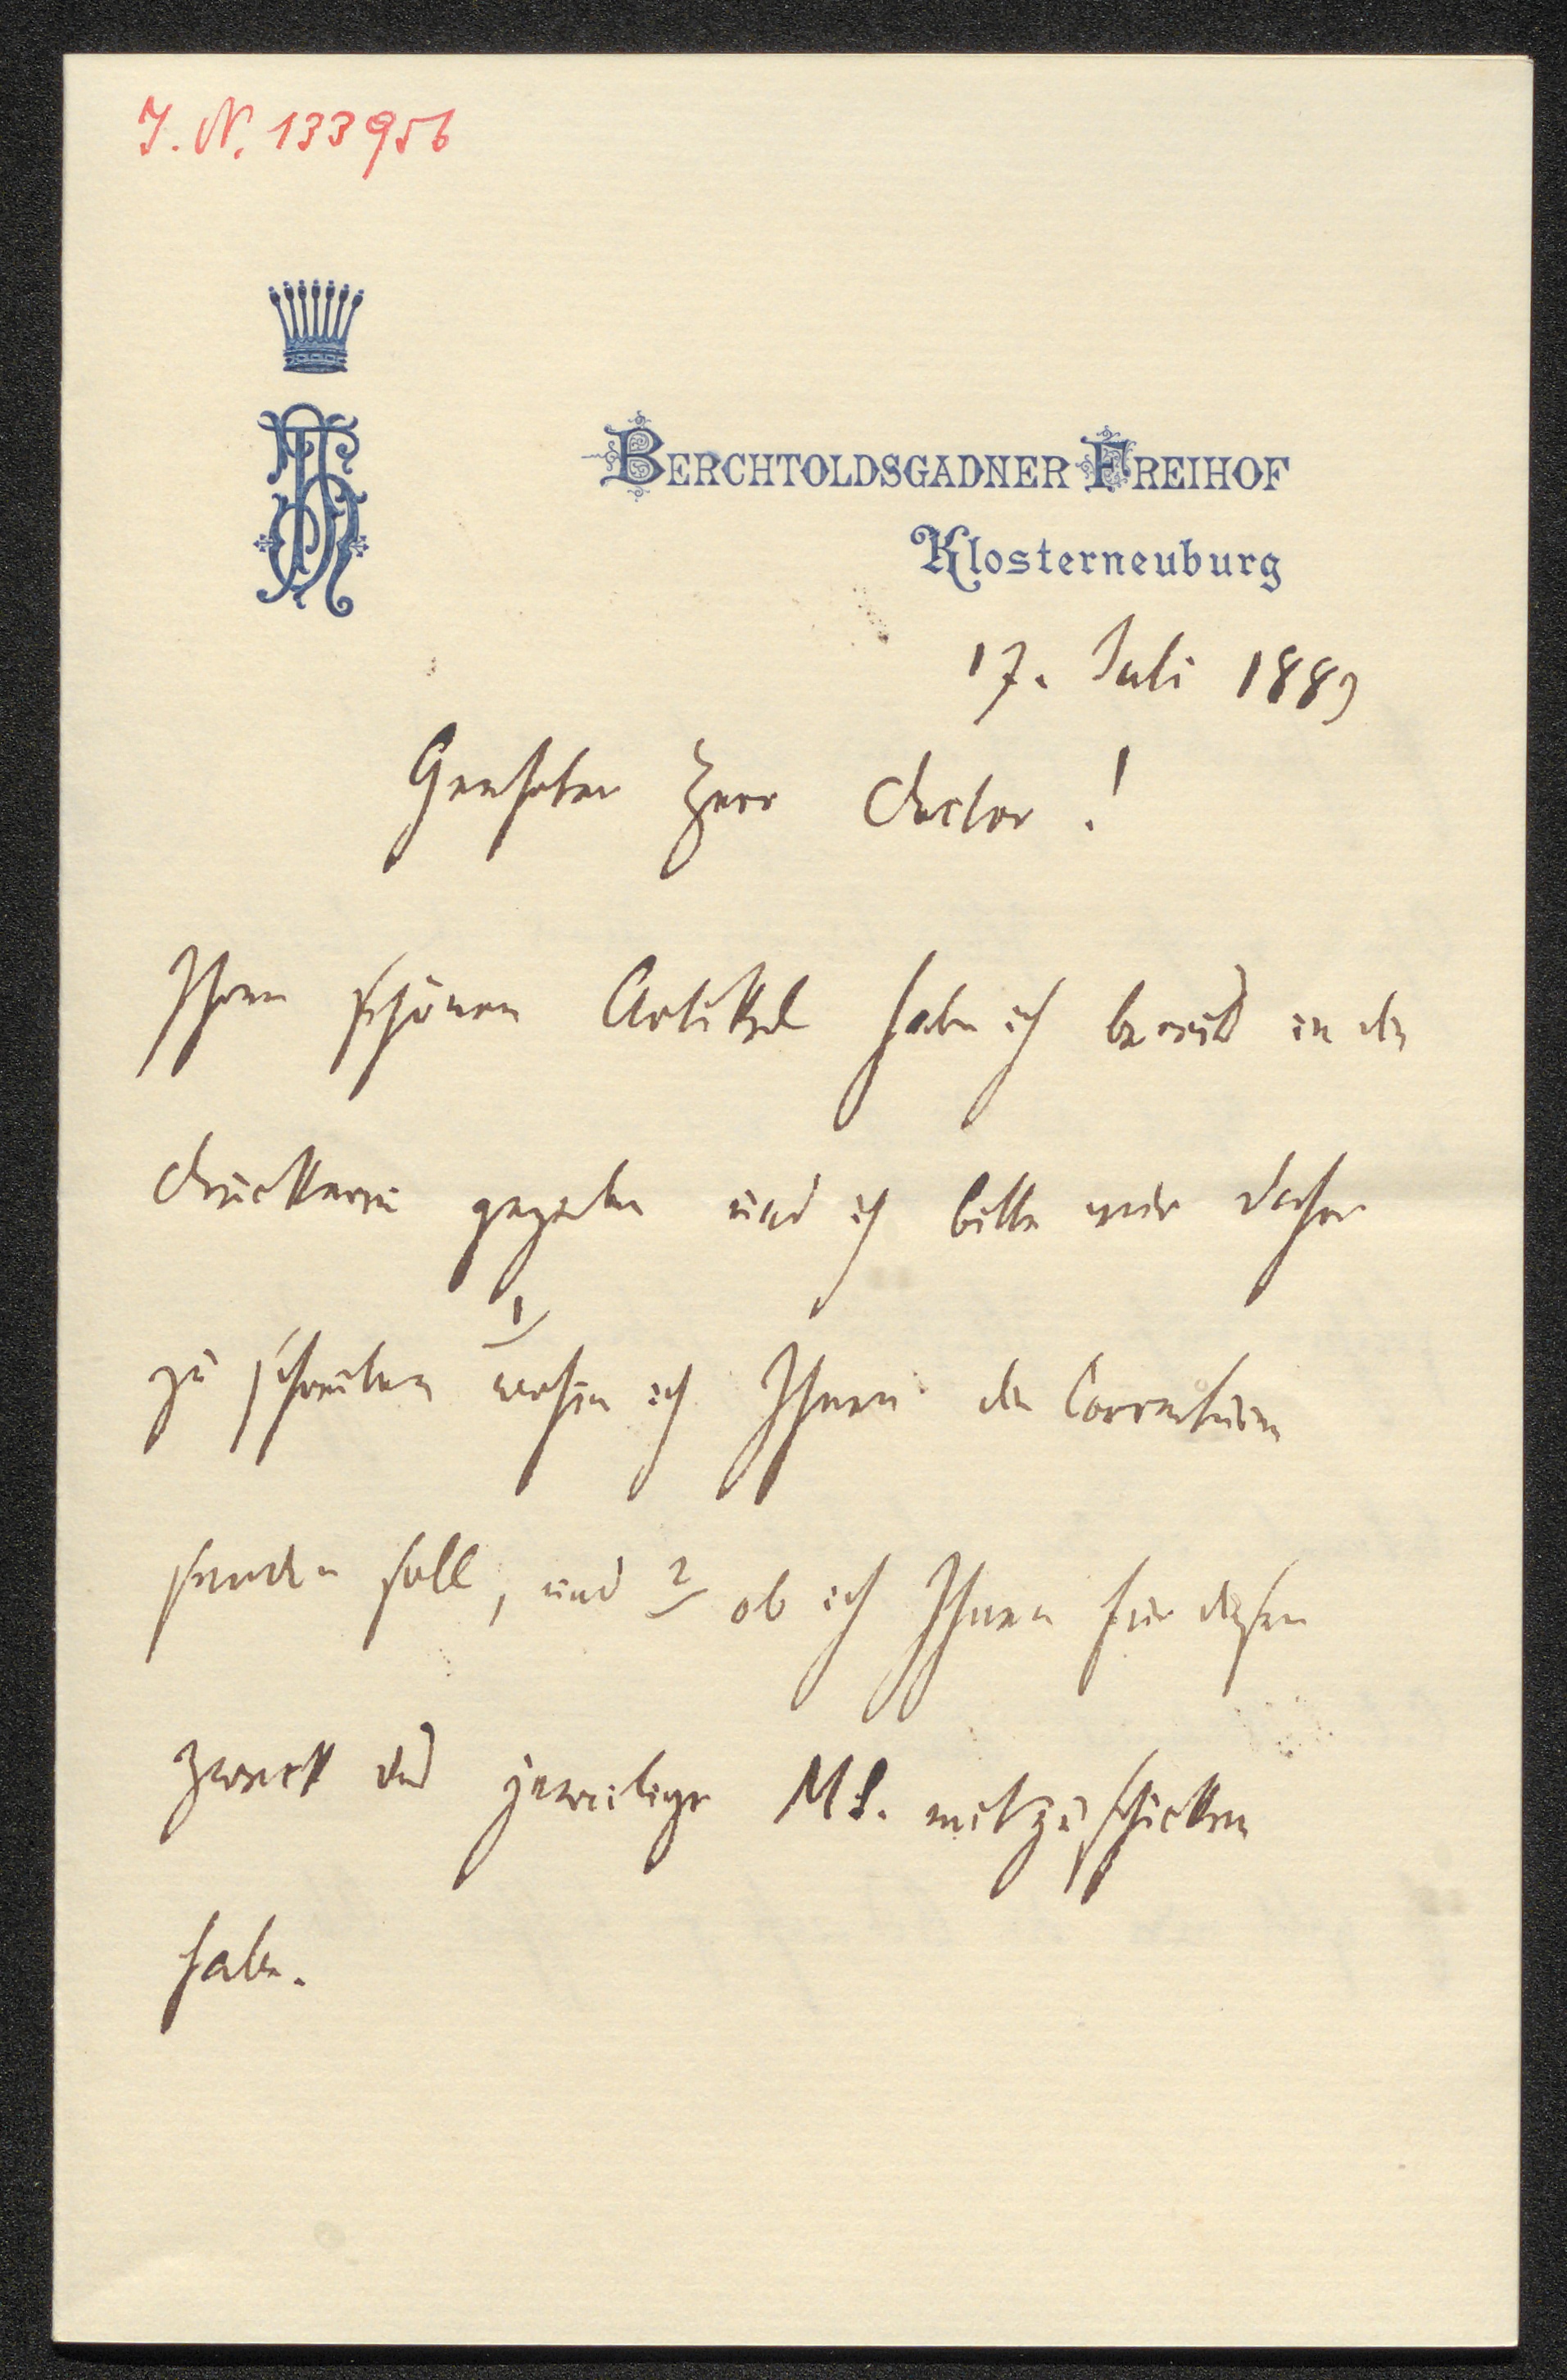 I. N. 133956
BERCHTOLDSGADNER FREIHOF
Klosterneuburg
17. Juli 1889
Geehrter Herr Doctor!
Ihren schönen Artikel habe ich bereits in die
Druckerei gegeben und ich bitte mir daher
zu schreiben 1/ wohin ich Ihnen die Correcturen
senden soll, und 2/ ob ich Ihnen für diesen
Zweck das jeweilige MS. mitzuschicken
habe.